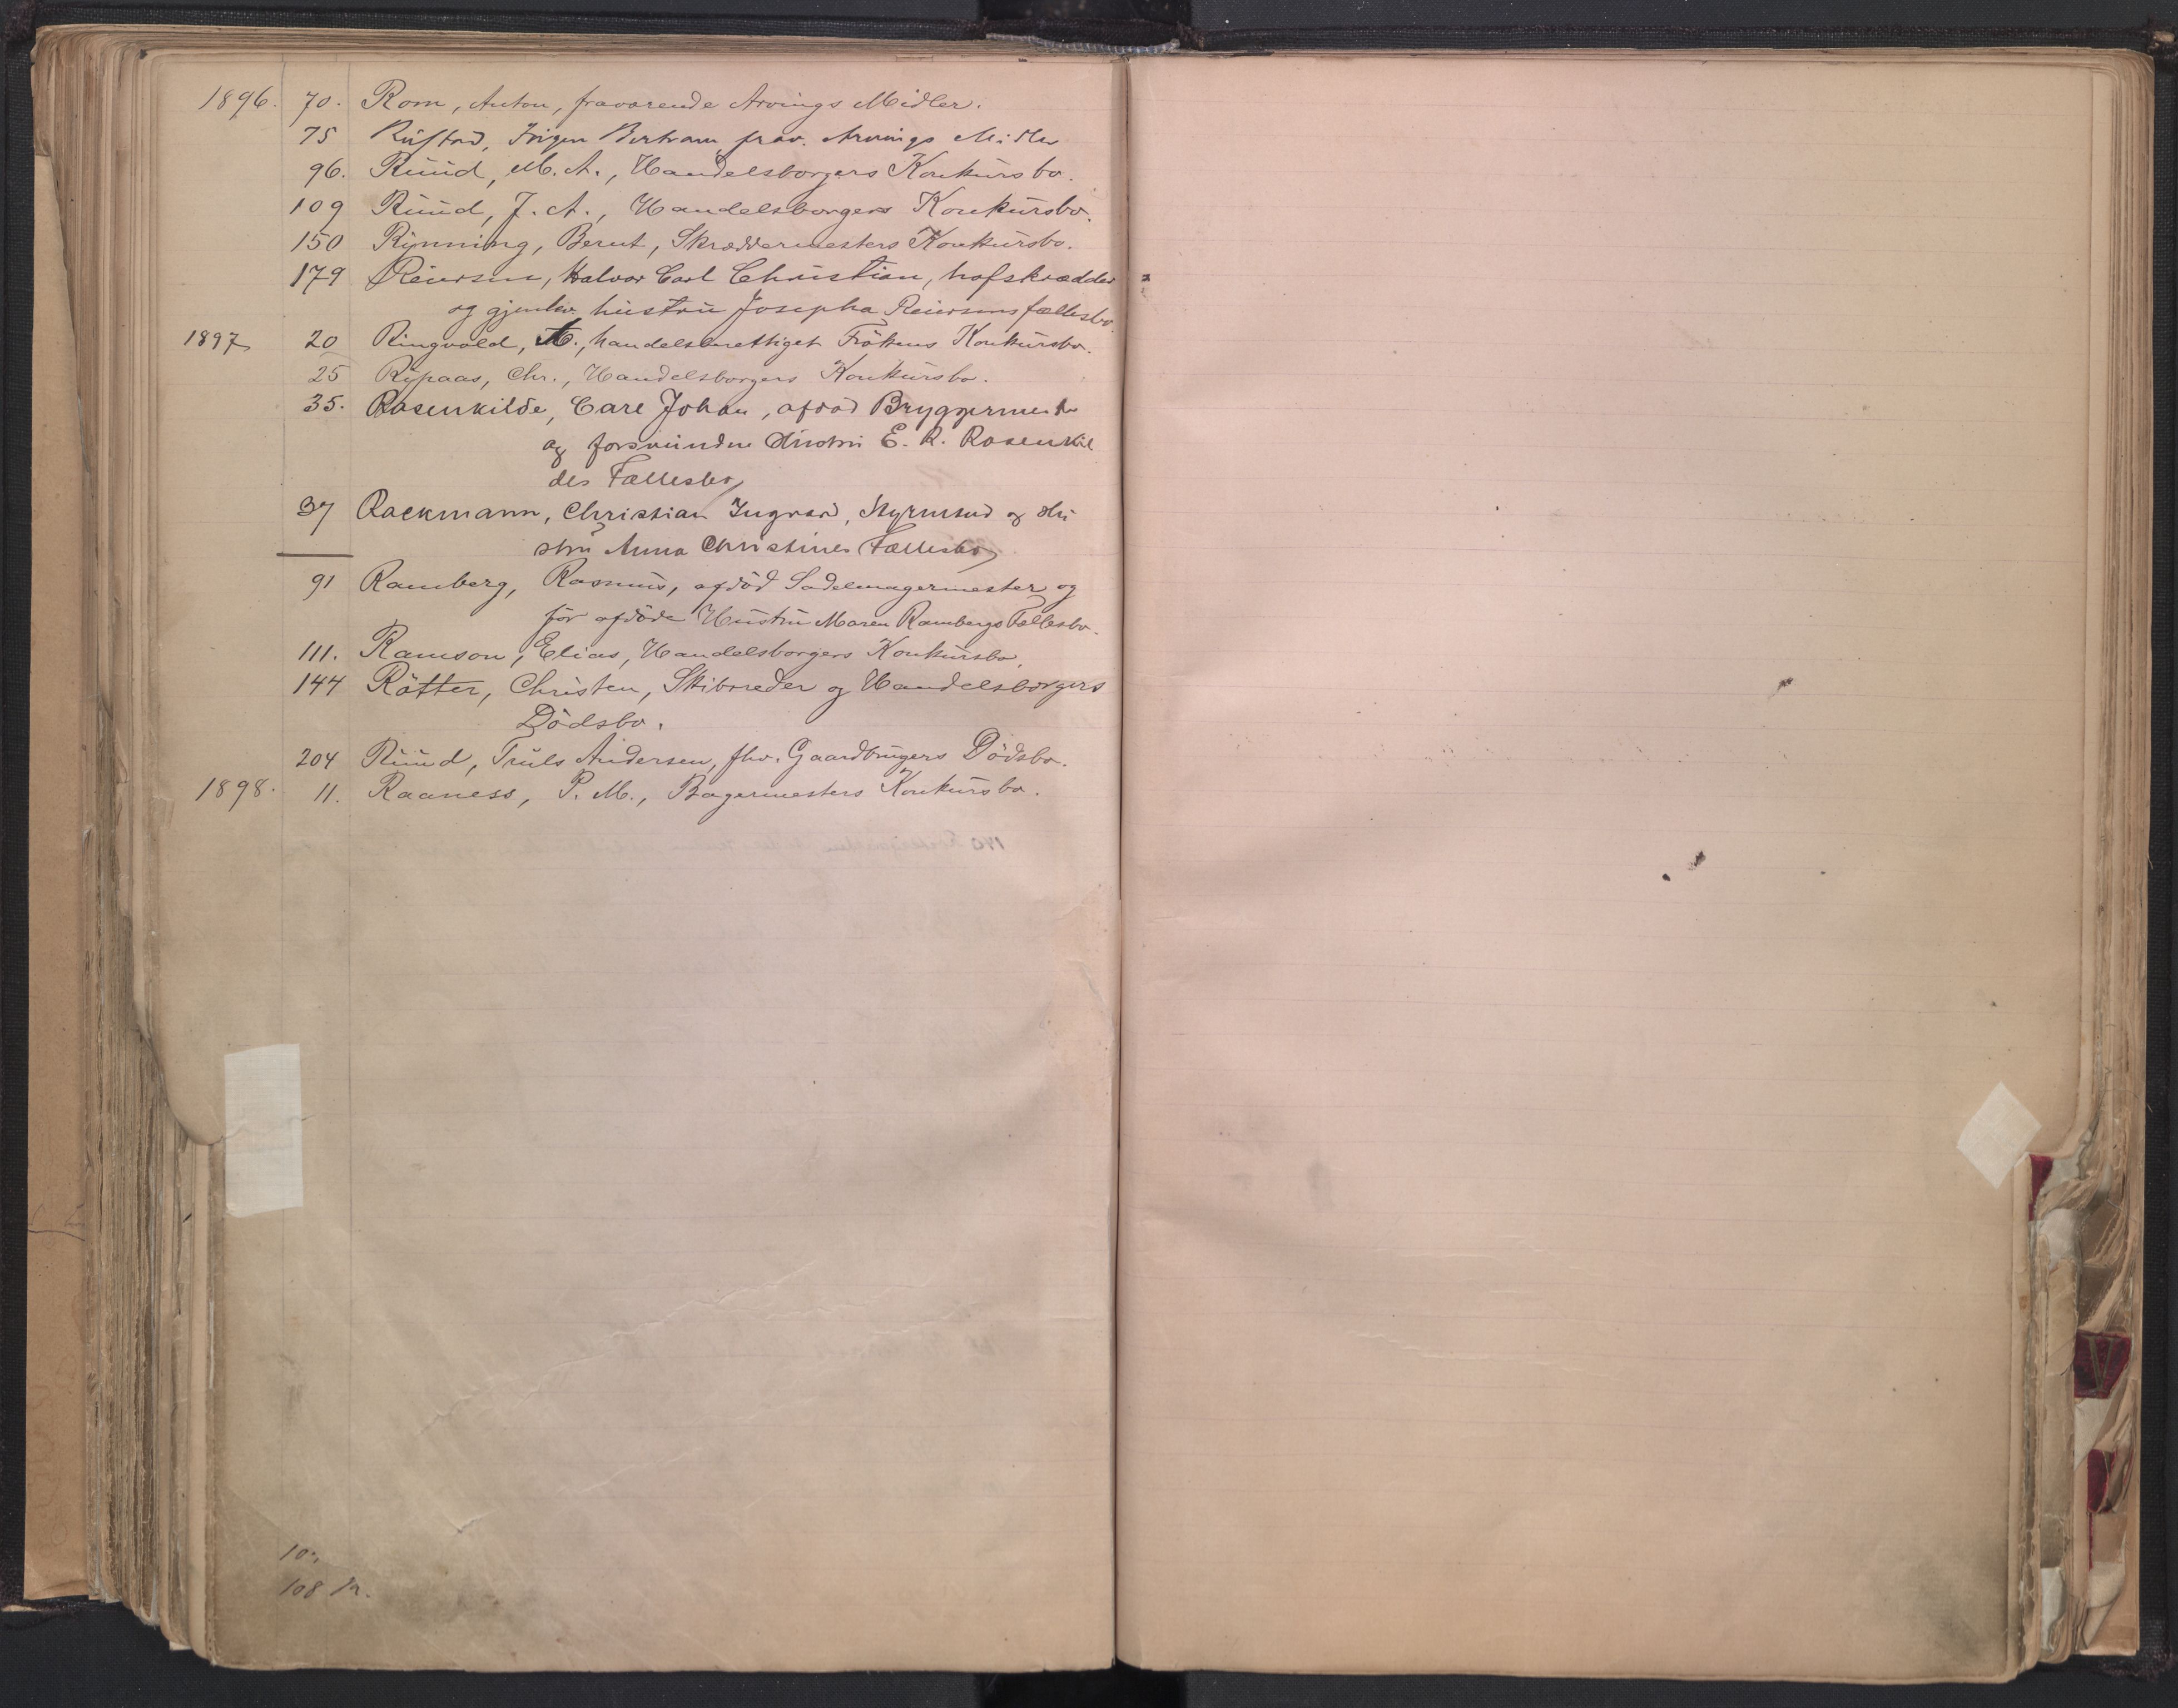 1896. 70. Rom, Anton, fraværende Arvings Midler.
75 Rustad, Jörgen Bertram, frav. Arvings Midler
96. Ruud, M. A., Handelsborgers Konkursbo.
109 Ruud, J. A., Handelsborgers Konkursbo.
150 Rynning, Bernt, Skræddermesters Konkursbo.
179 Reiersen, Halvor Carl Christian, hofskrædder
og gjenlev. hustru Josepha Reiersens fællesbo.
1897 20 Ringvold, M., handelsberettiget Frökens Konkursbo.
25 Rypaas, Chr., Handelsborgers Konkursbo.
35. Rosenkilde, Carl Johan, afdöd Bryggermester
og forsvundne Hustru E. R. Rosenkil
des Fællesbo
37 Rackmann, Christian Ingvard, Styrmand og Hu
stru Anna Christines Fællesbo
91 Ramberg, Rasmus, afdöd Sadelmagermester og
för afdöde Hustru Maren Rambergs Fællesbo.
111. Ramson, Elias, Handelsborgers Konkursbo.
144 Rötter, Christen, Skibsreder og Handelsborgers
Dödsbo.
204 Ruud, Truls Andersen, fhv. Gaardbrugers Dödsbo.
1898. 11. Raaness, P. M., Bagermesters Konkursbo.
108